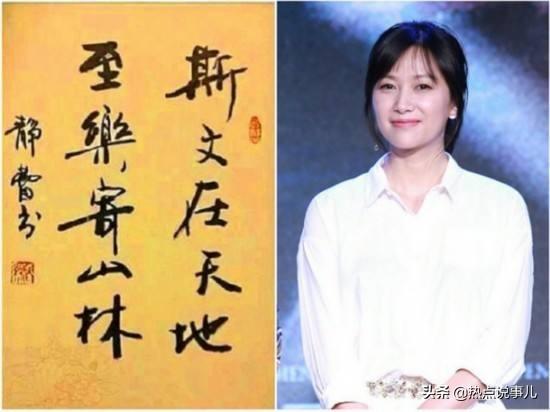 斯文在天地
至樂寄山林
静蕾书
头条 @热点说事儿